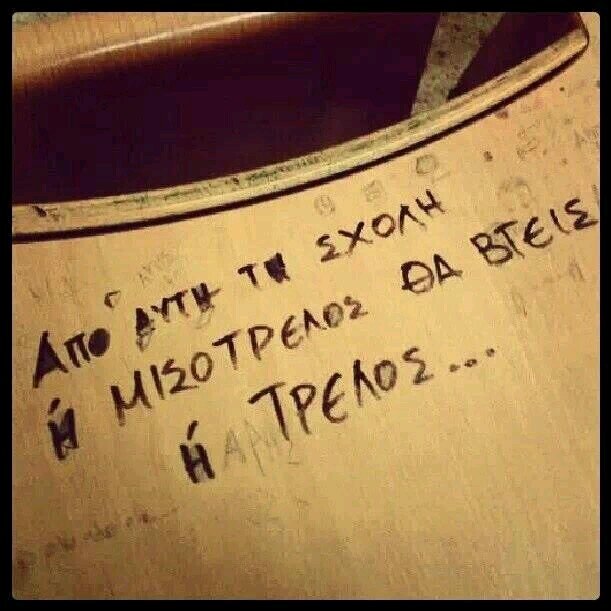 ΑΠΟ ΑΥΤΗ ΤΗ ΣΧΟΛΗ
Ή ΜΙΣΟΤΡΕΛΟΣ ΘΑ ΒΓΕΙΣ
Ή ΤΡΕΛΟΣ...